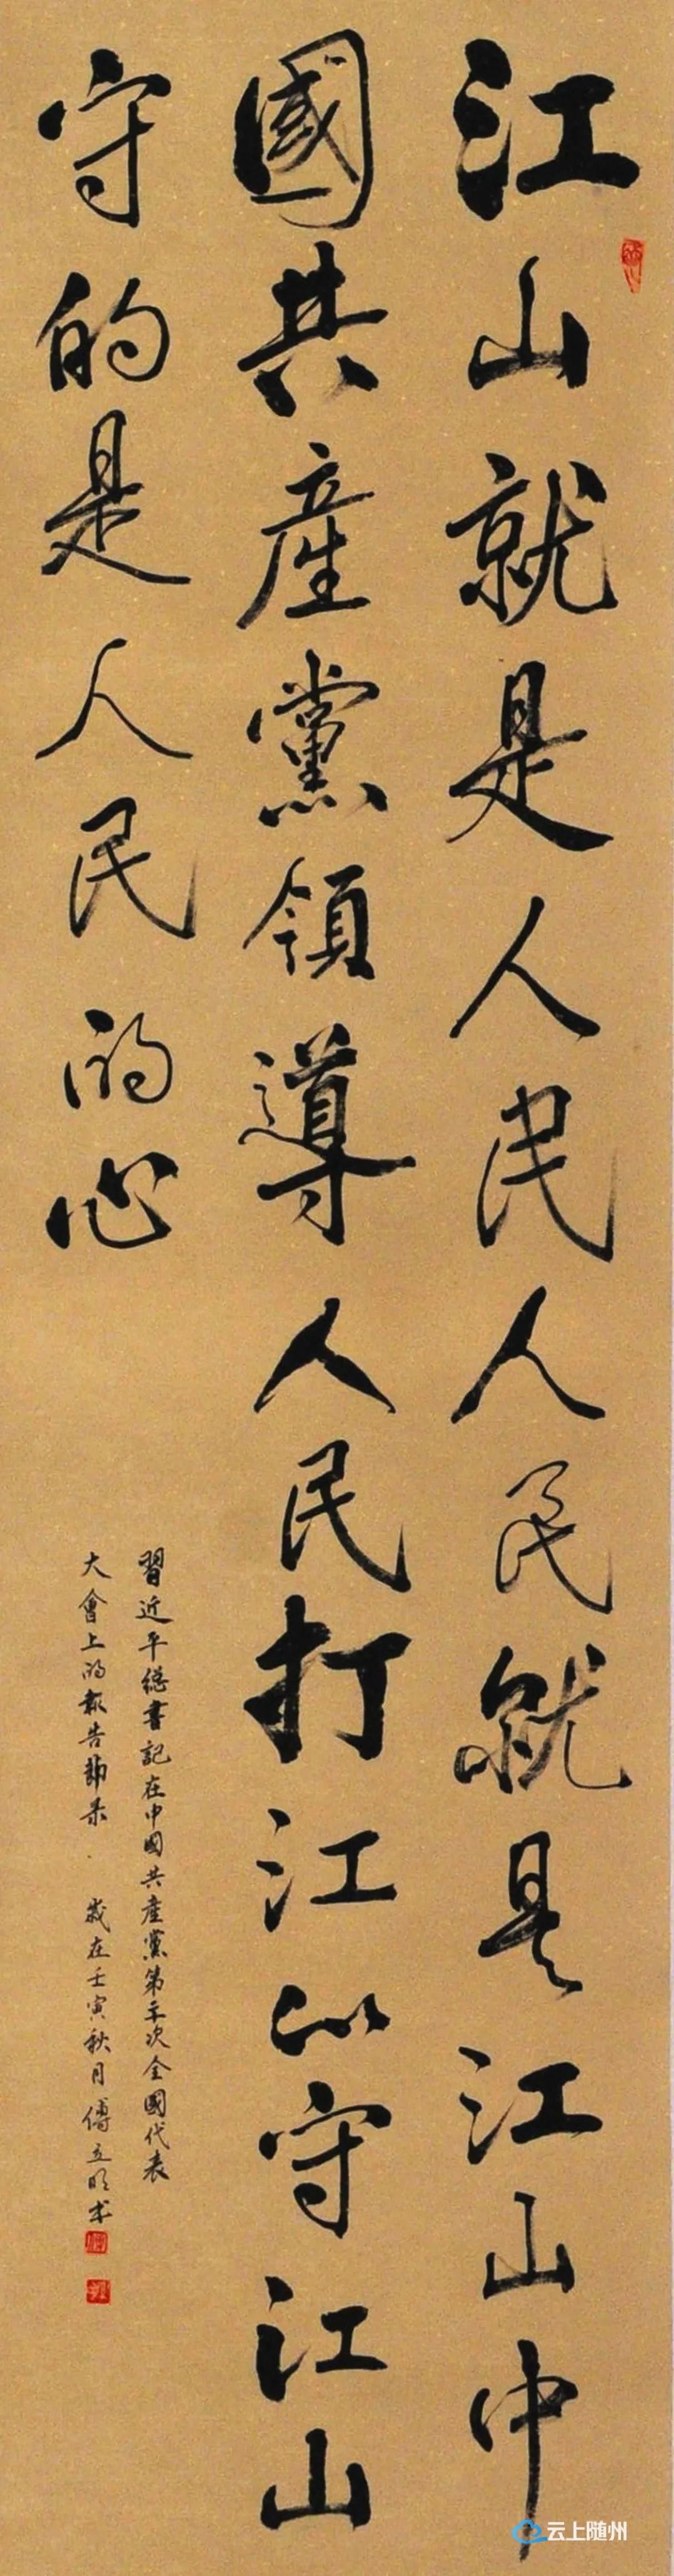 江山就是人民人民就是江山中
國共產黨領導人民打江山守江山
守的是人民的心
習近平總書記在中國共產黨第二十次全國代表
大會上的報告節录 歲在壬寅秋月傅立明书
云上随州